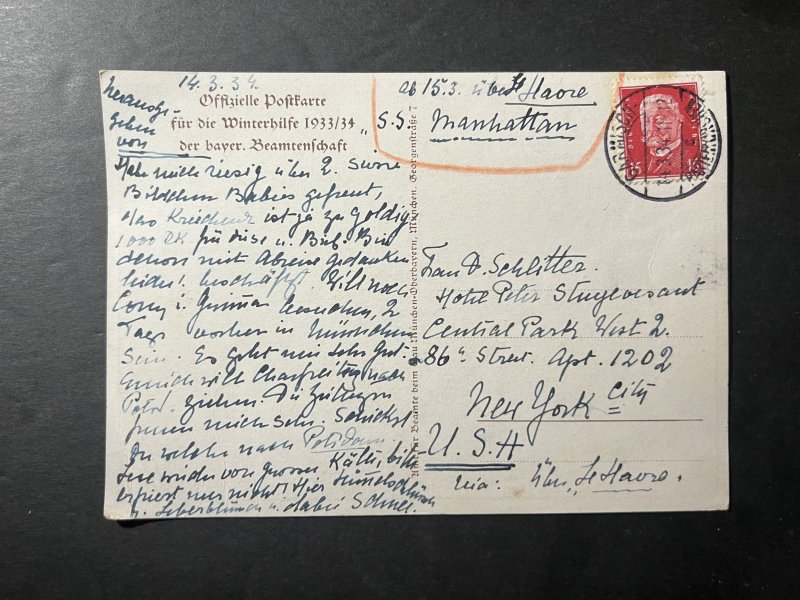 14.3.34.
Offizielle Postkarte
für die Winterhilfe 1933/34
der bayer. Beamtenschaft
herausge-
geben
von
Hab mich riesig über 2. süsse
Bildchen Babies gefreut,
das ist ja zu goldig
1000 Dk. für diese u. Bub. Bin
schon mit Abreise gedanken
leider! beschäftigt. Will noch
Cony i. besuchen, 2
Tage vorher in München
sein. Es geht mir sehr gut.
will Charfreitag nach
Potsd. ziehen. Die Zeitungen
freuen mich sehr. Schickst
Du welche nach Potsdam.
Lese wieder von grosser Kälte, bitte
erfriert mir nicht! Hier
u. Leberblumen u. dabei Schnee.
ab 15.3. über Le Havre
S.S. „Manhattan
Nur für Beamte beim Gau München-Oberbayern, München, Georgenstraße 7
Frau D. Schlitter.
Hotel Peter Stuyvesant
Central Park West 2.
86th Street. Apt. 1202
New York City
U.S.A
via: über „Le Havre"
15 15